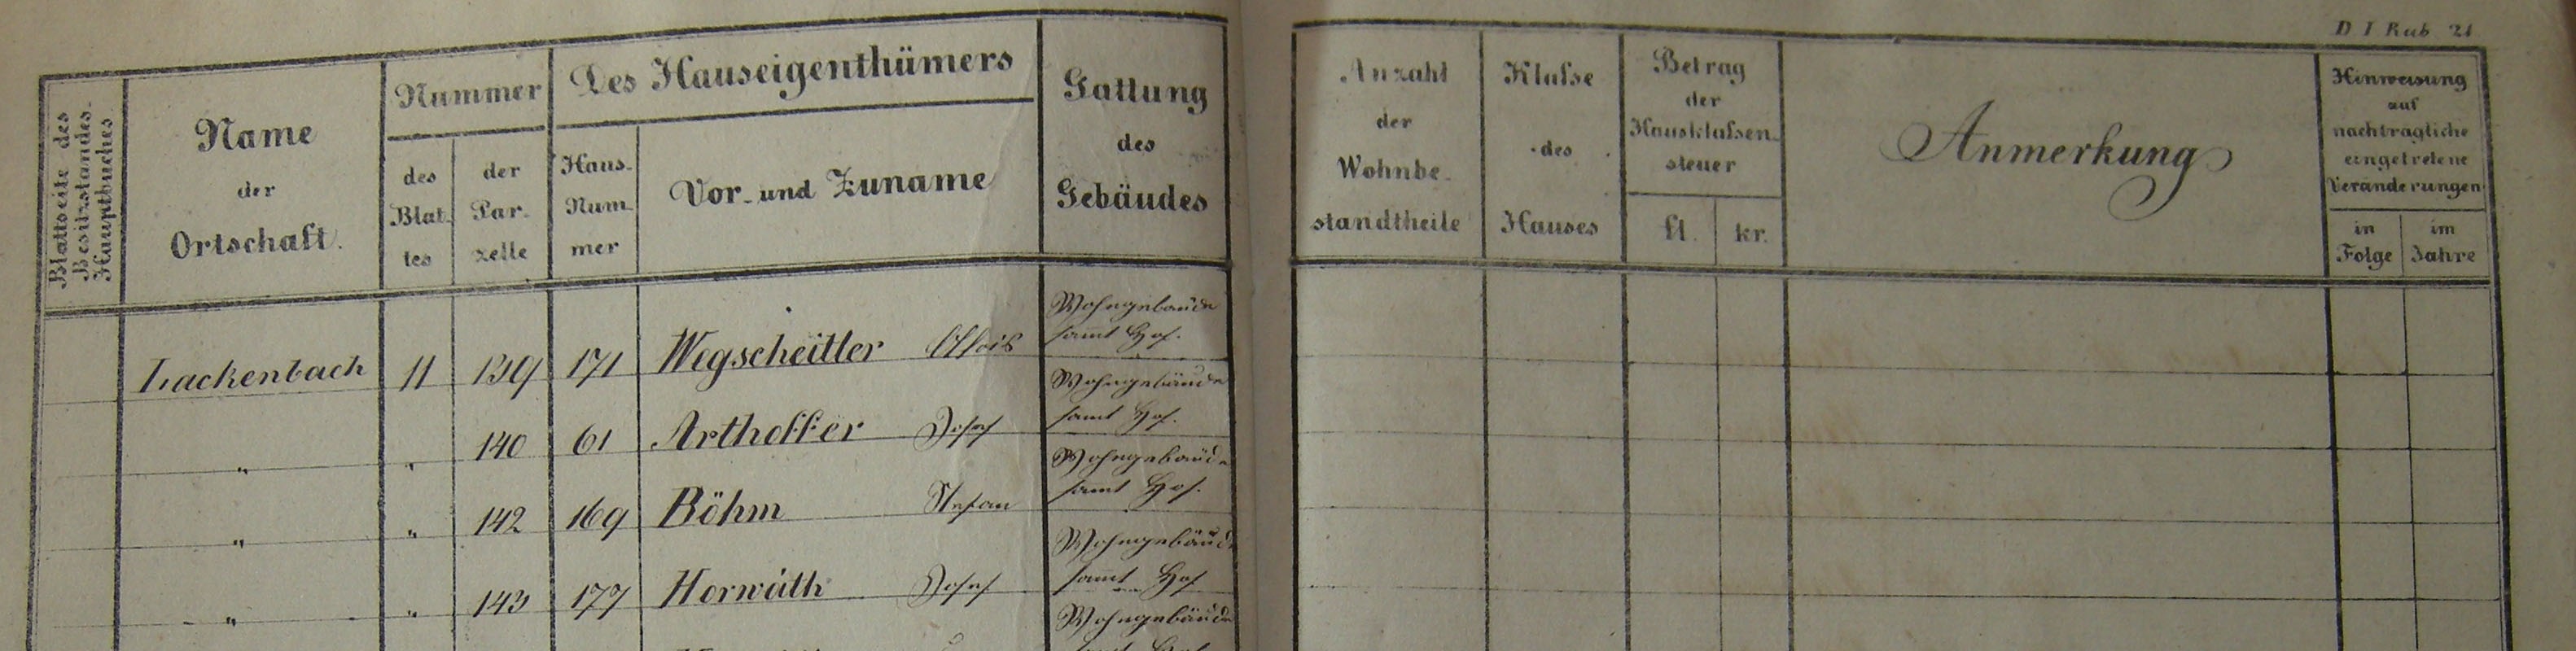 D I Rub 21
Blattseite des
Besitzstandes-
Hauptbuches
Name
der
Ortschaft.
Nummer
des
Blat-
tes
der
Par-
zelle
Des Hauseigenthümers
Haus-
Num-
mer
Vor- und Zuname
Gattung
des
Gebäudes
Anzahl
der
Wohnbe-
standtheile
Klaſse
des
Hauses
Betrag
der
Hausklaſsen-
steuer
fl.
kr.
Anmerkung
Hinweisung
auf
nachträgliche
eingetretene
Veränderungen
in
Folge
im
Jahre
Lackenbach 11 139 171 Wegscheitler Alois Wohngebäude
samt Hof.
" " 140 61 Arthoffer Josef Wohngebäude
samt Hof.
" " 142 169 Böhm Stefan Wohngebäude
samt Hof.
" " 143 177 Horwáth Josef Wohngebäude
samt Hof
Wohngebäude